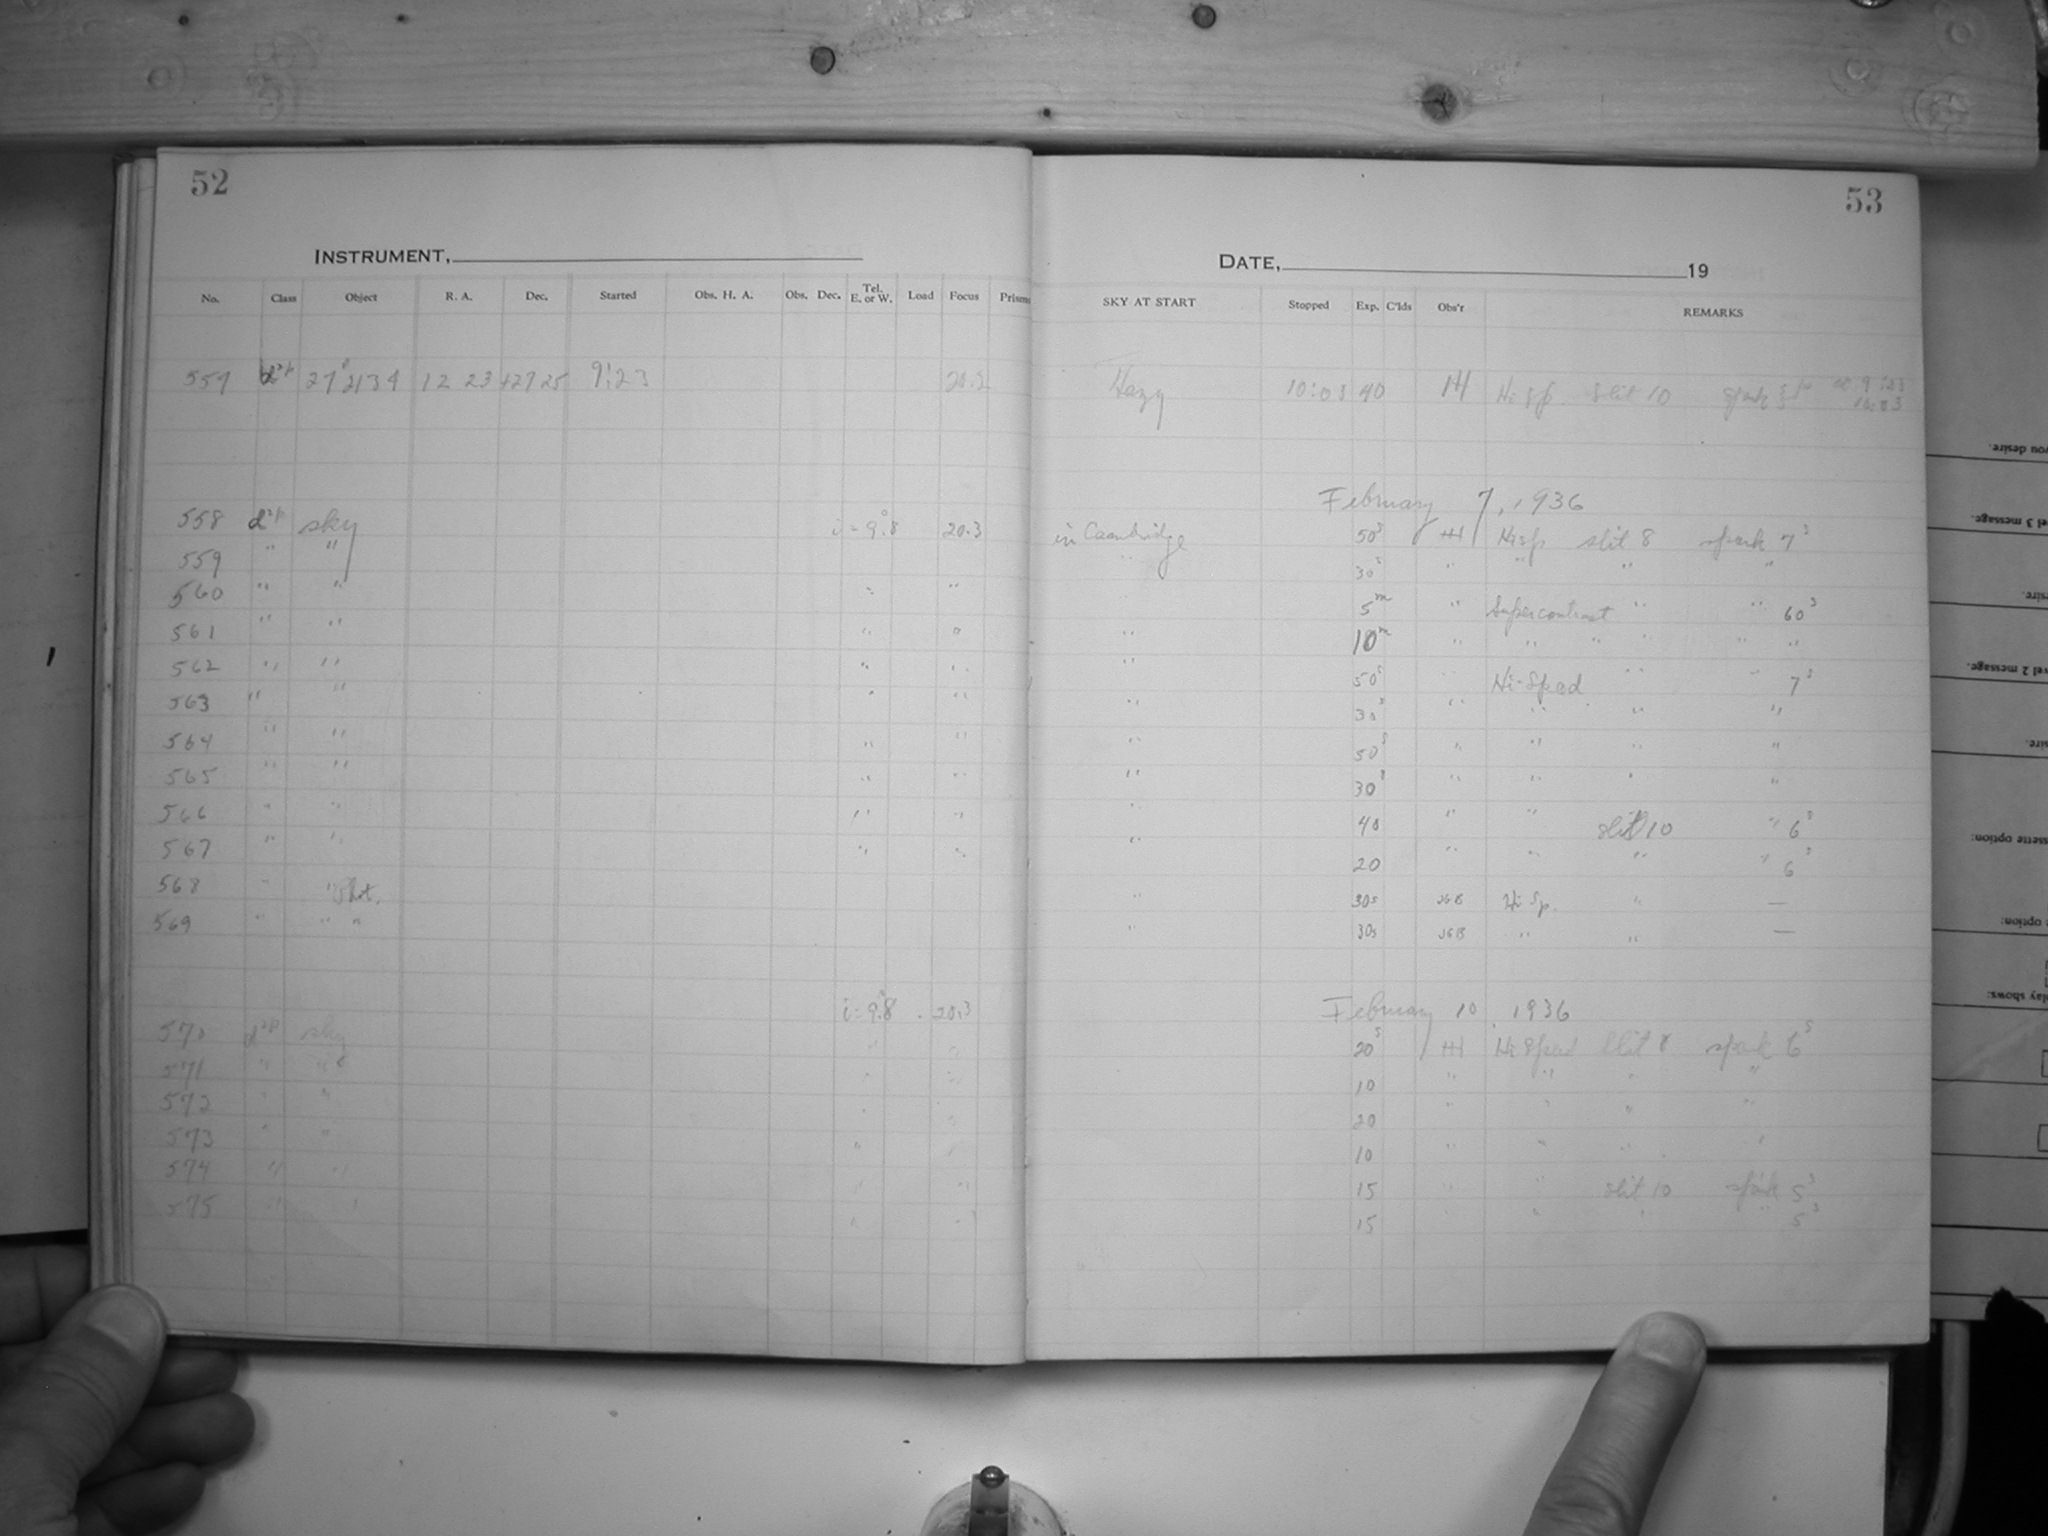 52
53
INSTRUMENT,
DATE, 19
No. Class Object R. A. Dec. Started Obs. H. A. Obs. Dec. Tel. E. or W. Load Focus Prisms SKY AT START Stopped Exp. C'lds Obs'r REMARKS
557 27°2134 12 23 +27 25 9:23 20.2 Hazy 10:03 40 HH Hi Sp. slit 10 spark 9:23
10:03
February 7, 1936
558 sky i = 9.8 20.3 in Cambridge 50s HH Hisp slit 8 spark 7s
559 " " 30s " " " "
560 " " " " 5m " Supercontrast " " 60s
561 " " " " " 10m " " " " " "
562 " " " " " 50s " Hi-Speed " " 7s
563 " " " " " 30s " " " "
564 " " " " " 50s " " " "
565 " " " " " 30s " " " "
566 " " " " " 40 " " slit 10 " 6s
567 " " " " " 20 " " " " 6s
568 " " Phot. " 30s JGB Hi Sp. " —
569 " " " " 30s JGB " " —
i = 9.8 20.3 February 10, 1936
570 sky " " 20s HH Hi Speed slit 8 spark 6s
571 " " " " 10 " " " "
572 " " " " 20 " " " "
573 " " " " 10 " " " "
574 " " " " 15 " " slit 10 spark 5s
575 " " " " 15 " " " " 5s
you desire.
el 3 message.
sire.
vel 2 message.
sire.
ssette option:
option:
play shows: